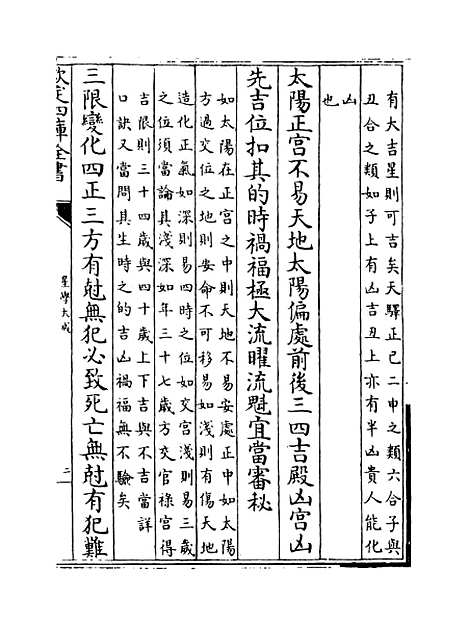 有大吉星則可吉矣天驛正己二申之類六合子與
丑合之類如子上有凶吉丑上亦有半凶貴人能化
凶
也
太陽正宫不易天地太陽偏處前後三四吉殿凶宫凶
先吉位扣其的時禍福極大流曜流魁宜當審秘
如太陽在正宫之中則天地不易安處正中如太陽
方過交位之地則安命不可移易如淺則有傷天地
造化正氣如深則易四時之位如交宫淺則易三歲
之位須當論其淺深如年三十七歲方交官祿宫得
吉限則三十四歲與四十歲上下吉與不吉當詳
口訣又當問其生時之的吉凶禍福無不驗矣
三限變化四正三方有尅無犯必致死亡無尅有犯難
欽定四庫全書
星學大成
二